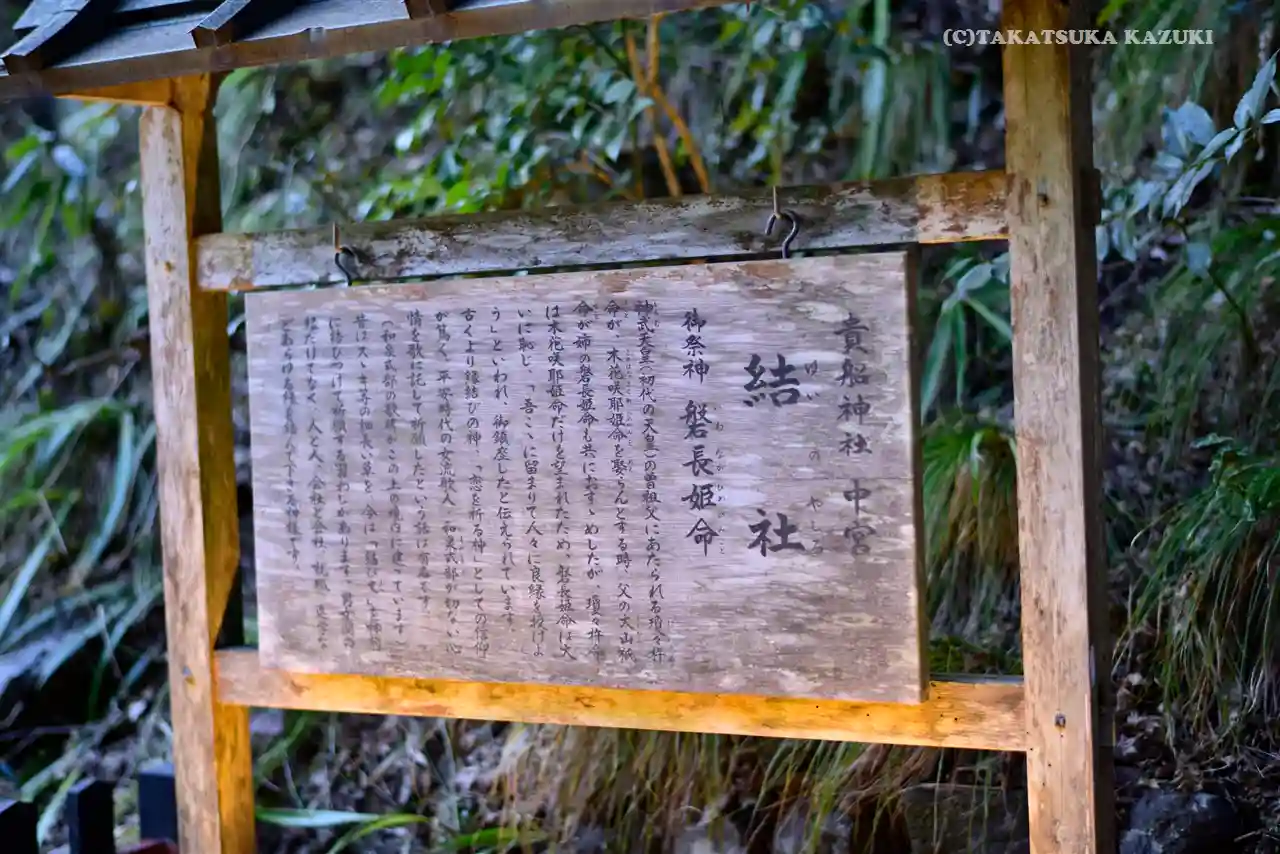 (C)TAKATSUKA KAZUKI
貴船神社 中宮
結社
ゆいのやしろ
御祭神 磐長姫命
いわながひめのみこと
神武天皇(初代の天皇)の曽祖父にあたられる瓊々杵
命が、木花咲耶姫命を娶らんとする時、父の大山祇
命が姉の磐長姫命も共におすゝめしたが、瓊々杵命
は木花咲耶姫命だけを望まれたため、磐長姫命は大
いに恥じ、「吾こゝに留まりて人々に良縁を授けよ
う」といわれ、御鎮座したと伝えられています。
古くより縁結びの神、「恋を祈る神」としての信仰
が篤く、平安時代の女流歌人・和泉式部が切ない心
情を歌に託して祈願したという話は有名です。
(和泉式部の歌碑がこの上の境内に建っています)
昔はスゝキ等の細長い草を、今は「結び文」を神前
に結びつけて祈願する習わしがあります。男女間の
縁だけでなく、人と人、会社と会社、就職、進学な
どあらゆる縁を結んで下さる神様です。